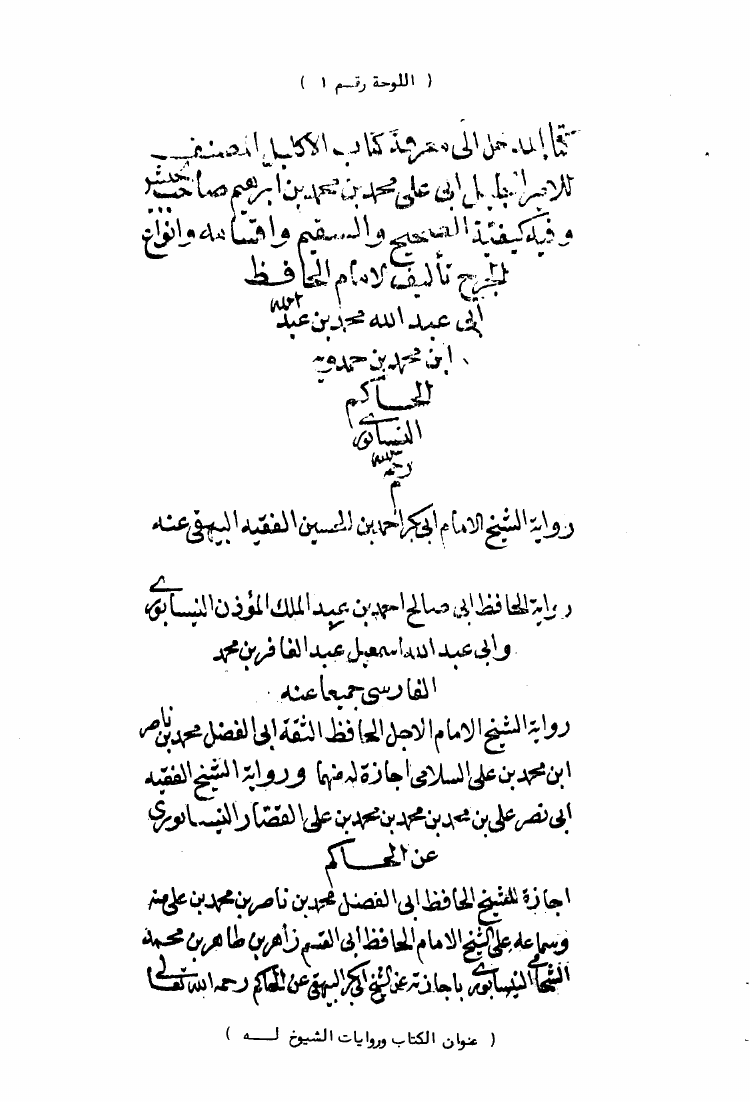 ( اللوحة رقم ١ )
كتاب المدخل الى معرفة كتاب الاكليل المصنف
للامير الجليل ابي على محمد بن محمد بن ابرهيم صاحب الجيش
وفيه كيفية الصحيح والسقيم واقسامه وانواع
الجرح تأليف الامام الحافظ
ابي عبد الله محمد بن عبد الله
ابن محمد بن حمدويه
الحاكم
النيسابوري
رحمه الله
رواية الشيخ الامام ابي بكر احمد بن الحسين الفقيه البيهقى عنه
رواية الحافظ ابى صالح احمد بن عبد الملك المؤذن النيسابورى
وابى عبد الله اسمعيل عبد الغافر بن محمد
الفارسى جميعا عنه
رواية الشيخ الامام الاجل الحافظ الثقة ابى الفضل محمد بن ناصر
ابن محمد بن على السلامى اجازة له منهما ورواية الشيخ الفقيه
ابى نصر على بن محمد بن محمد بن محمد بن على القصار النيسابورى
عن الحاكم
اجازة للشيخ الحافظ ابى الفضل محمد بن ناصر بن محمد بن على منه
وسماعه على الشيخ الامام الحافظ ابى القسم زاهر بن طاهر بن محمد
الشحامى النيسابورى باجازته عن الشيخ ابى بكر البيهقى عن الحاكم رحمه الله تعالى
( عنوان الكتاب وروايات الشيوخ لـــه )